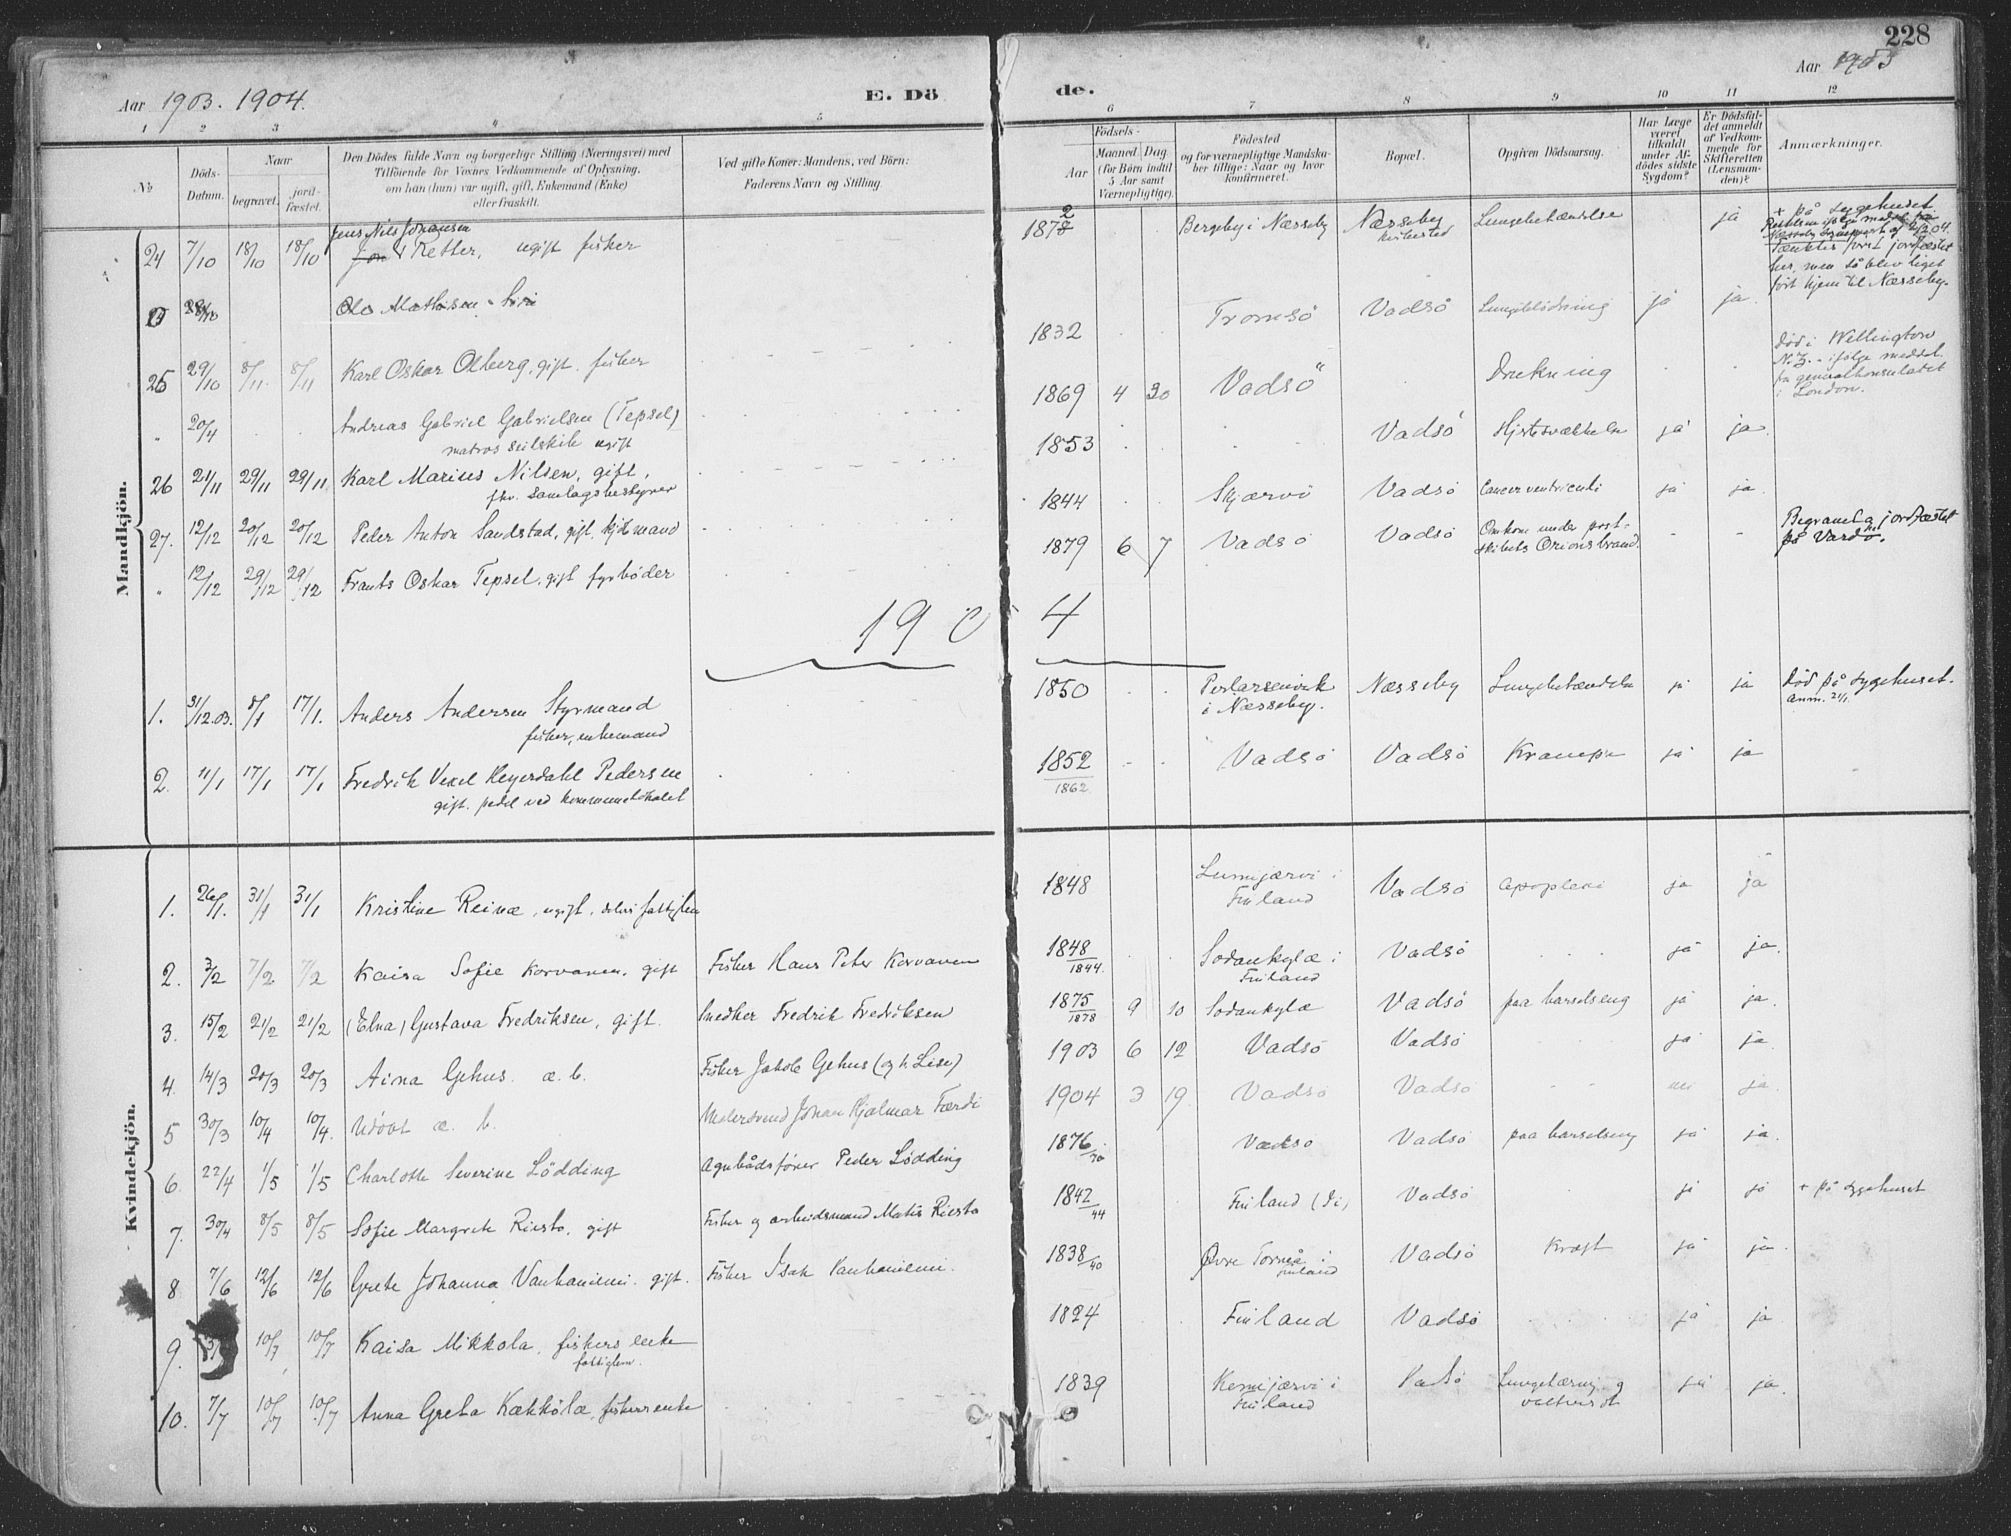 228
Aar 1903. 1904.
E. Dö
de.
Aar 1903
1 2 3 4 5
6 7 8 9 10 11 12
No
Döds-
Datum.
Naar
begravet.
jord-
fæstet.
Den Dödes fulde Navn og borgerlige Stilling (Næringsvei) med
Tilföiende for Voxnes Vedkommende af Oplysning,
om han (hun) var ugift, gift, Enkemand (Enke)
eller fraskilt.
Ved gifte Koner: Mandens, ved Börn:
Faderens Navn og Stilling.
Aar
Födsels-
Maaned Dag
(for Börn indtil
5 Aar samt
Værnepligtige).
Födested
og for værnepligtige Mandska-
ber tillige: Naar og hvor
konfirmeret.
Bopæl.
Opgiven Dödsaarsag.
Har Læge
været
tilkaldt
under Af-
dödes sidste
Sygdom?
Er Dödsfal-
det anmeldt
af Vedkom-
mende for
Skifteretten
(Lensman-
den)?
Anmærkninger.
Mandkjön.
Jens Nils Johansen
24 7/10 18/10 18/10 Retter, ugift fisker 1872 Bergeby i Næsseby Næsseby Lungebetændelse ja
+ på sygehuset
Tænktes først jordfæstet
her, men så blev liget
ført hjem til Næsseby.
28/10 Ole Mathisen 1832 Tromsö Vadsö Lungeblödning ja ja
25 29/10 8/11 8/11 Karl Oskar Olberg, gift fisker 1869 4 20 Vadsö Drukning
Död i Wellington
N.Z. - ifölge meddel.
fra generalkonsulatet
i London.
" 20/4 Andreas Gabriel Gabrielsen (Tepsel)
matros seilskib ugift 1853 Vadsö Hjertesvækkelse ja ja
26 21/11 29/11 29/11 Karl Marius Nilsen, gift,
fhv. samlagsbestyrer 1844 Skjærvö Vadsö Cancer ventriculi ja ja
27. 12/12 20/12 20/12 Peder Anton Sandstad, gift, kjöbmand 1879 6 7 Vadsö Vadsö Omkom under post-
skibets Orions brand. - -
Begravet og jordfæstet
på Vardö.
" 12/12 29/12 29/12 Frants Oskar Tepsel, gift fyrböder
1904
1. 31/12.03. 8/1 17/1. Anders Andersen Styrmand
fisker, enkemand 1850 i Næsseby. Næsseby Lungebetændelse ja ja Död på sygehuset.
anm. 21/1
2. 11/1 17/1 17/1 Fredrik Vexel Heyerdahl Pedersen
gift. pedel ved kommunelokalet 1852
1862 Vadsö Vadsö Krampe ja ja
Kvindekjön.
1. 26/1. 31/1 31/1 Kristine Reinæ, ugift, fattiglem 1848 Lumijærvi i
Finland Vadsö apoplexi ja ja
2. 3/2 7/2 7/2 Kaisa Sofie Korvanen, gift Fisker Hans Peter Korvanen 1848
1844. Sodankylæ i
Finland Vadsö ja ja.
3. 15/2 21/2 21/2 (Elna) Gustava Fredriksen, gift. Snedker Fredrik Fredriksen 1875
1878 9 10 Sodankylæ Vadsö paa barselseng ja ja.
4. 14/3 20/3 20/3 Aina Gehus. æ. b. Fisker Jakob Gehus (og h. Lise) 1903 6 12 Vadsö Vadsö ja ja.
5 30/3 10/4 10/4. Udöbt æ. b. Johan Hjalmar Færdi 1904 3 19 Vadsö Vadsö nei ja.
6. 22/4 1/5 1/5 Charlotte Severine Lödding Agnbådsförer Peder Lödding 1876/70 Vadsö Vadsö paa barselseng ja ja.
7. 30/4 8/5 8/5 Sofie Margrete Riesto, gift Fisker og arbeidsmand Matis Riesto 1842/44 Finland (Ii) Vadsö ja ja + på sygehuset
8. 7/6 12/6 12/6 Grete Johanna Vanhaniemi. gift. Fisker Isak Vanhaniemi. 1838/40 Övre Torneå i
Finland Vadsö Kræft ja ja.
9. 10/7 10/7 Kaisa Mikkola, fiskers enke
fattiglem. 1824 Finland Vadsö ja ja.
10. 7/7 10/7 10/7 Anna Greta Kækkölæ, fiskerenke 1839 Kemijærvi i
Finland Vadsö ja ja.